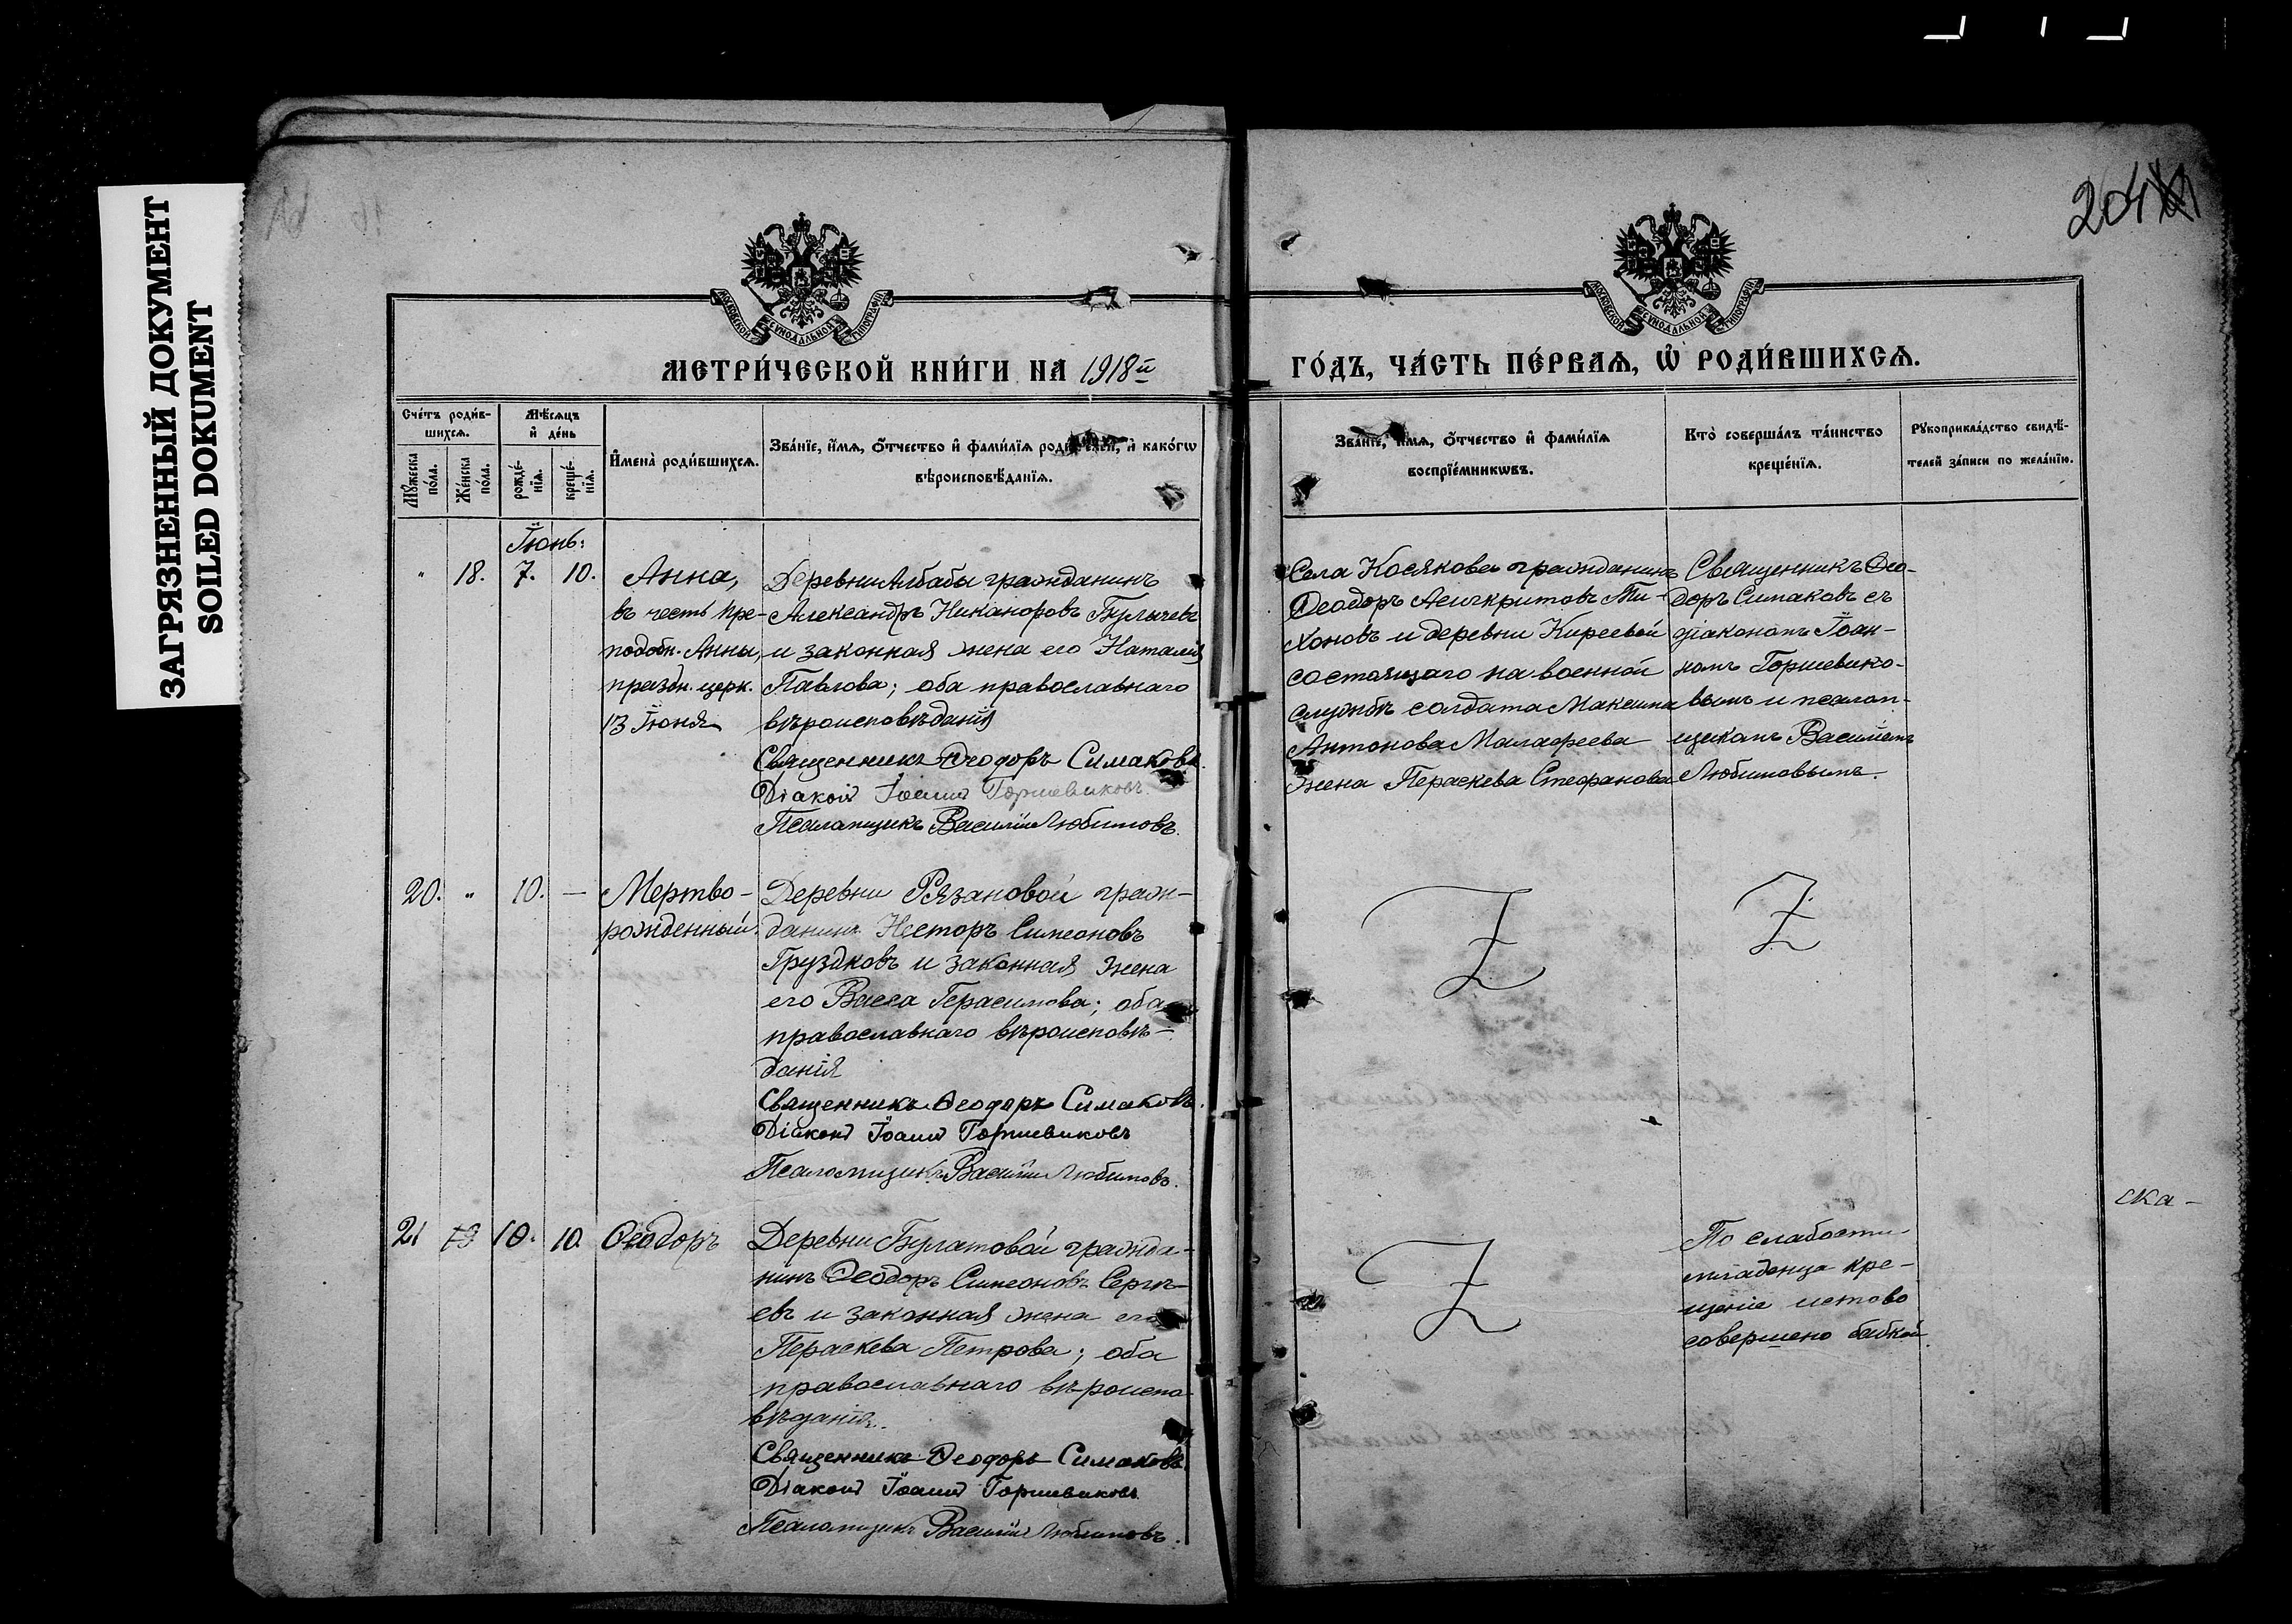 ЗАГРЯЗНЕННЫЙ ДОКУМЕНТ
SOILED DOKUMENT
204
МОСКОВСКОЙ СѴНОДАЛЬНОЙ ТИПОГРАФІИ
МОСКОВСКОЙ СѴНОДАЛЬНОЙ ТИПОГРАФІИ
МЕТРИ́ЧЕСКОЙ КНИ́ГИ НА 1918й
ГО́ДЪ, ЧА́СТЬ ПЕ́РВАѦ, Ѡ҆ РОДИ́ВШИХСѦ.
Сче́тъ роди́в-
шихсѧ.
Мѣ́сѧцъ
и҆ де́нь
Мꙋ́жеска
по́ла.
Же́нска
по́ла.
рожде́-
нїѧ.
креще́-
нїѧ.
И҆мена̀ роди́вшихсѧ.
Зва́нїе, и҆́мѧ, ѻ҆́тчество и҆ фами́лїѧ роди́телей, и҆ како́гѡ
вѣроисповѣ́данїѧ.
Зва́нїе, и҆́мѧ, ѻ҆́тчество и҆ фами́лїѧ
воспрїе́мникѡвъ.
Кто̀ соверша́лъ та́инство
креще́нїѧ.
Рꙋкоприкла́дство свидѣ́-
телей за́писи по жела́нїю.
Іюнь:
" 18. 7. 10.
Анна,
въ честь пре-
подобн. Анны,
праздн. церк.
13 Іюня
Деревни Албабы гражданинъ
Александръ Никаноровъ Булычевъ
и законная жена его Наталія
Павлова; оба православнаго
вѣроисповѣданія
Священникъ Ѳеодоръ Симаковъ.
Діаконъ Іоаннъ Горшевиковъ.
Псаломщикъ Василій Любимовъ.
Села Косякова гражданинъ
Ѳеодоръ Асигкритовъ Ти-
хоновъ и деревни Киреевой
состоящаго на военной
службѣ солдата Максима
Антонова Малафеева
жена Параскева Стефанова
Священникъ Ѳео-
доръ Симаковъ съ
діакономъ Іоан-
номъ Горшевико-
вымъ и псалом-
щикомъ Василіемъ
Любимовымъ.
20. " 10. —
Мертво-
рожденный.
Деревни Рязановой граж-
данинъ Несторъ Симеоновъ
Груздковъ и законная жена
его Васса Герасимова; оба
православнаго вѣроисповѣ-
данія
Священникъ Ѳеодоръ Симаковъ.
Діаконъ Іоаннъ Горшевиковъ
Псаломщикъ Василій Любимовъ.
ска-
21 10. 10.
Ѳеодоръ
Деревни Булатовой гражда-
нинъ Ѳеодоръ Симеоновъ Сергѣ-
евъ и законная жена его
Параскева Петрова; оба
православнаго вѣроиспо-
вѣданія.
Священникъ Ѳеодоръ Симаковъ.
Діаконъ Іоаннъ Горшевиковъ.
Псаломщикъ Василій Любимовъ.
По слабости
младенца кре-
щеніе истово
совершено бабкой.